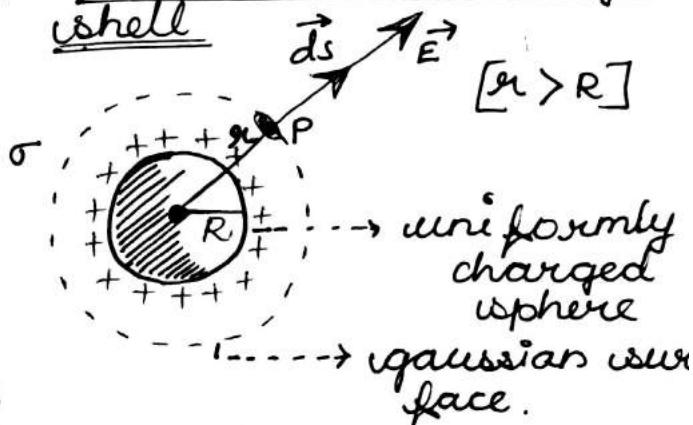 shell
→ds
→E
[r > R]
r
P
σ
R
uniformly
charged
sphere
gaussian sur
face.